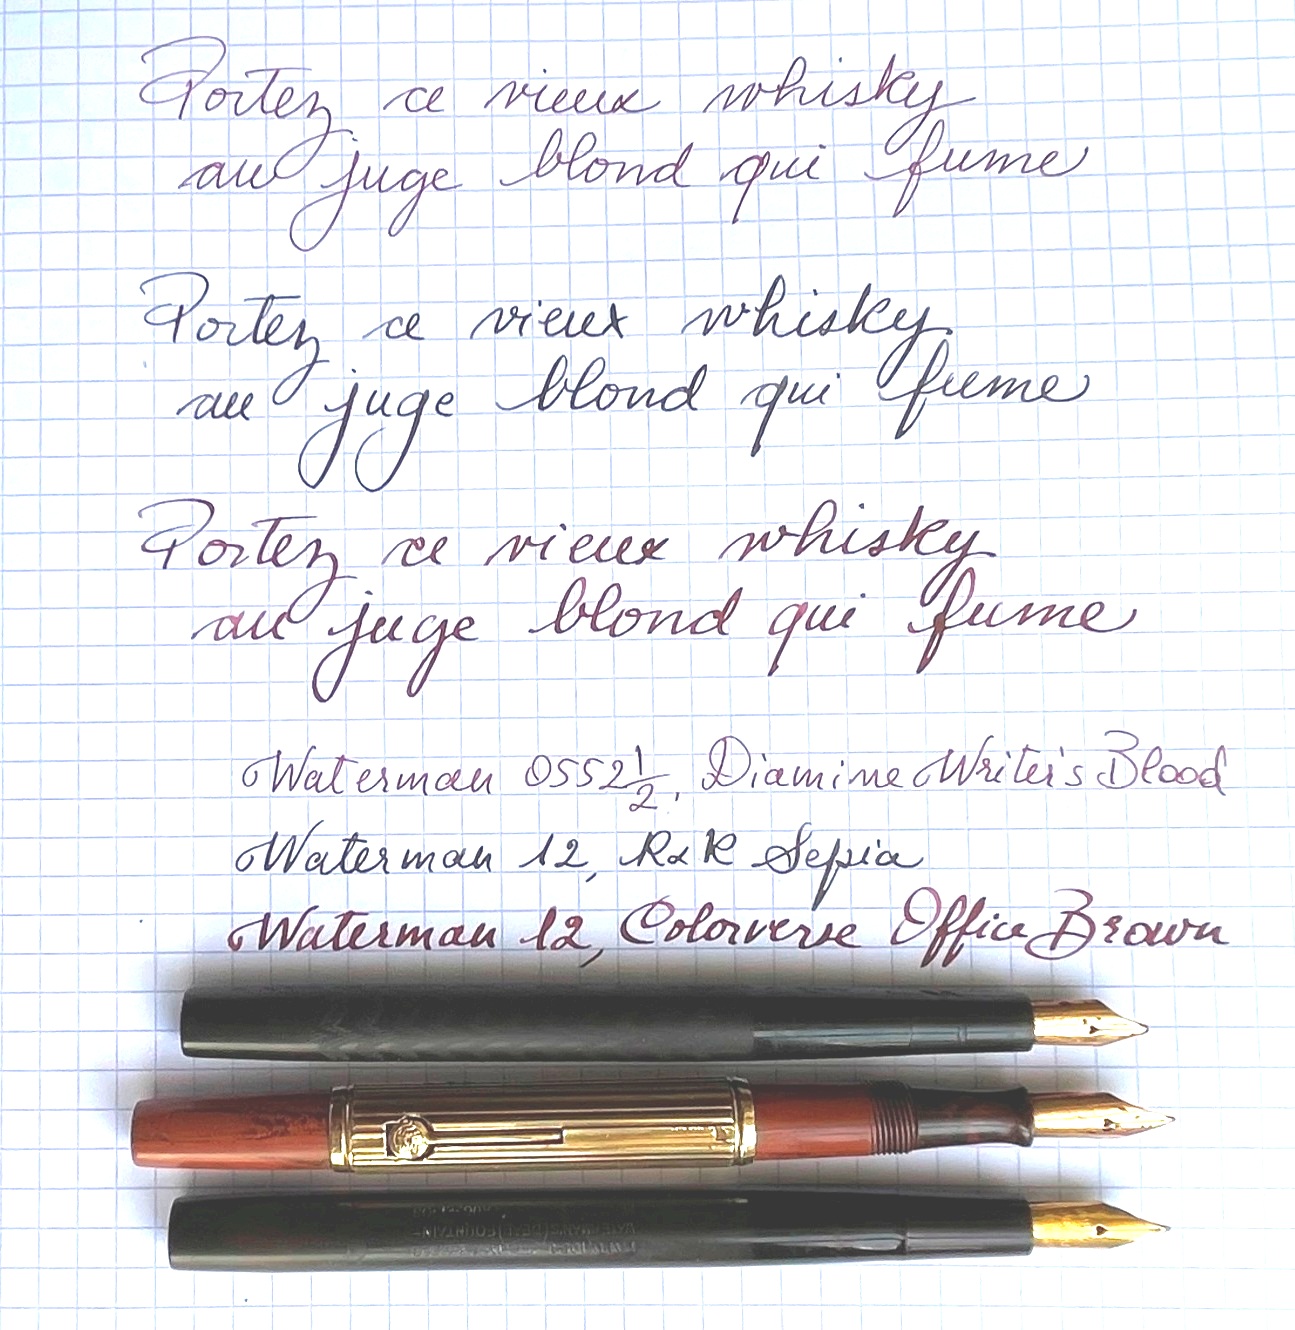 Portez ce vieux whisky
au juge blond qui fume
Portez ce vieux whisky
au juge blond qui fume
Portez ce vieux whisky
au juge blond qui fume
Waterman 0552 1/2, Diamine Writer's Blood
Waterman 12, R&K Sepia
Waterman 12, Colorverse Office Brown